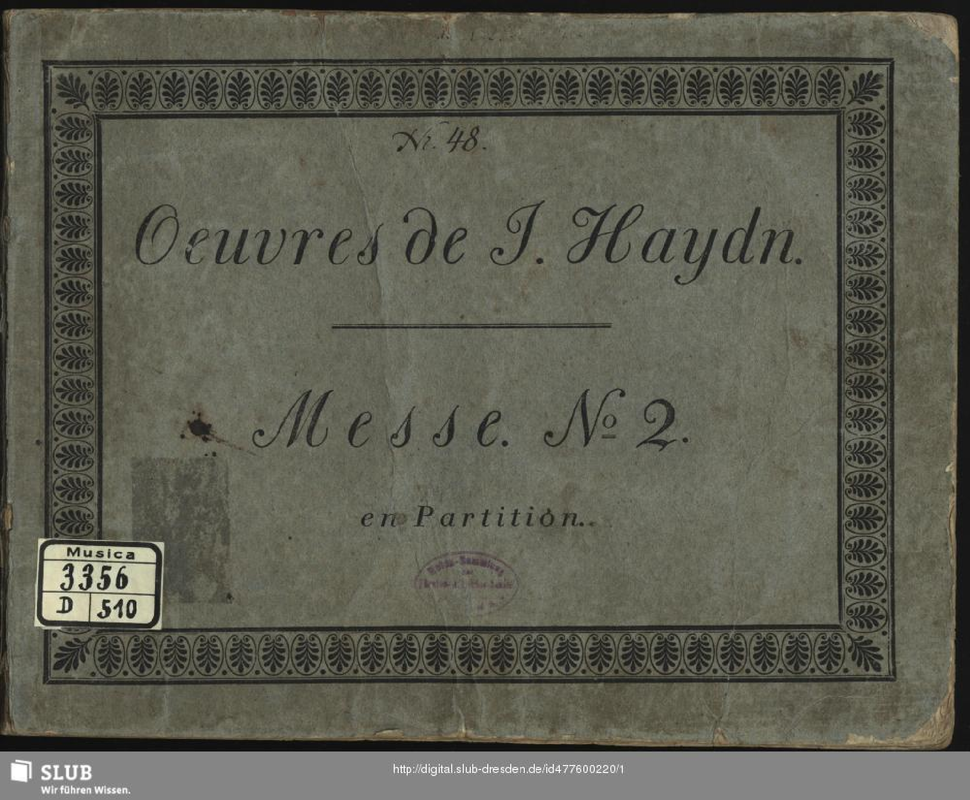 Nr. 48.
Oeuvres de J. Haydn.
Messe. No 2.
en Partition.
Musica
3356
D 510
SLUB
Wir führen Wissen.
http://digital.slub-dresden.de/id477600220/1